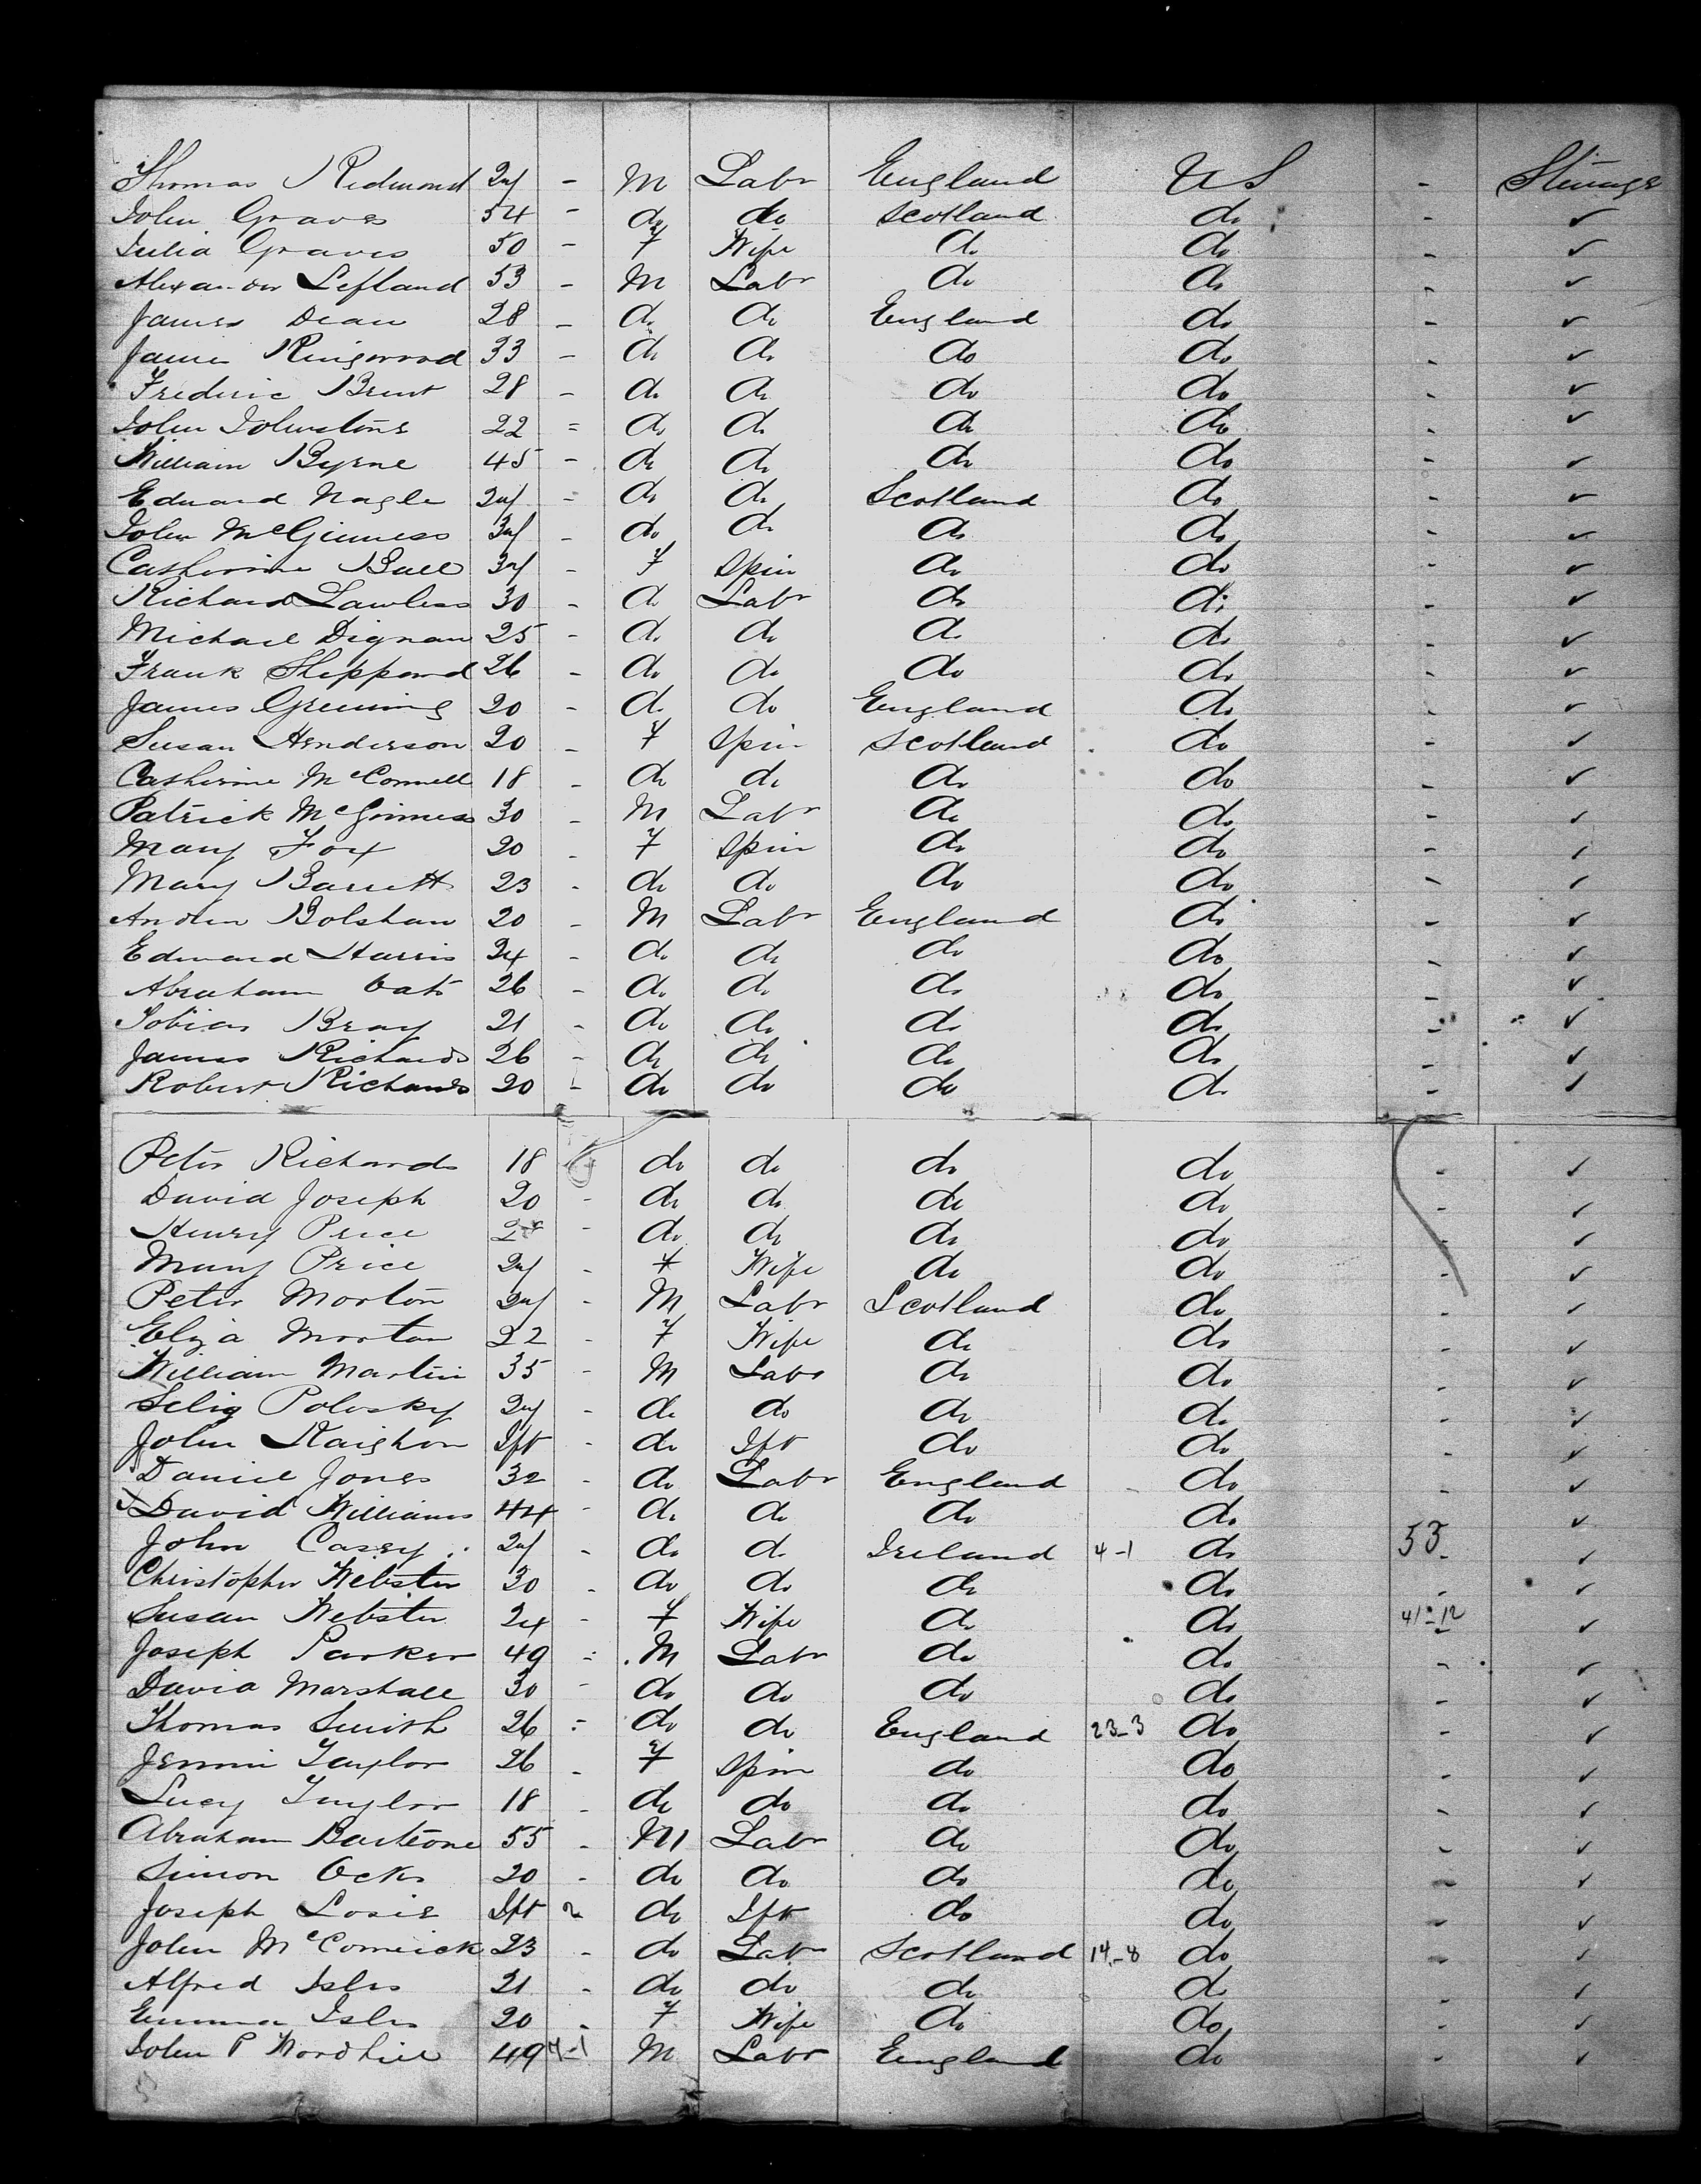 Thomas Redmond 24 - M Labr England U S - Steerage
John Graves 54 - do do Scotland do - ✓
Julia Graves 50 - F Wife do do - ✓
Alexander Lefland 53 - M Labr do do - ✓
James Dean 28 - do do England do - ✓
James Ringwood 33 - do do do do - ✓
Frederic Brent 28 - do do do do - ✓
John Johnstone 22 = do do do do - ✓
William Byrne 45 - do do do do - ✓
Edward Nagle 24 - do do Scotland do - ✓
John McGinness 34 - do do do do - ✓
Catherine Bull 34 - F Spin do do - ✓
Richard Lawless 30 - do Labr do do - ✓
Michael Dignam 25 - do do do do - ✓
Frank Sheppard 26 - do do do do - ✓
James Greening 20 - do do England do - ✓
Susan Henderson 20 - F Spin Scotland do - ✓
Catherine McConnell 18 - do do do do - ✓
Patrick McGinness 30 - M Labr do do - ✓
Mary Fox 20 - F Spin do do - ✓
Mary Barrett 23 - do do do do - ✓
Andrew Bolsham 20 - M Labr England do - ✓
Edward Harris 24 - do do do do - ✓
Abraham Oats 26 - do do do do - ✓
Tobias Bray 21 - do do do do - ✓
James Richards 26 - do do do do - ✓
Robert Richards 20 - do do do do - ✓
Peter Richards 18 do do do do - ✓
David Joseph 20 - do do do do - ✓
Henry Price - do do do do - ✓
Mary Price 24 - F Wife do do - ✓
Peter Morton 24 - M Labr Scotland do - ✓
Eliza Morton 22 - F Wife do do - ✓
William Martin 35 - M Labr do do - ✓
Selig Polosky 24 - do do do do - ✓
John Kaighon Ift - do Ift do do - ✓
Daniel Jones 32 - do Labr England do - ✓
David Williams 44 - do do do do ✓
John Casey 24 - do do Ireland 4-1 do 53 - ✓
Christopher Webster 30 - do do do do - ✓
Susan Webster 24 - F Wife do do 41-12 - ✓
Joseph Parker 49 - M Labr do do - ✓
David Marshall 30 - do do do do - ✓
Thomas Smith 26 - do do England 23-3 do - ✓
Jennie Taylor 26 - F Spin do do - ✓
Lucy Taylor 18 - do do do do - ✓
Abraham Barteone 55 - M Labr do do - ✓
Simon Ocks 20 - do do do do - ✓
Joseph Losie Ift do Ift do do - ✓
John McComick 23 - do Labr Scotland 14-8 do - ✓
Alfred Isles 21 - do do do do - ✓
Emma Isles 20 - F Wife do do - ✓
John P Wordhill 49 4-1 M Labr England do - ✓